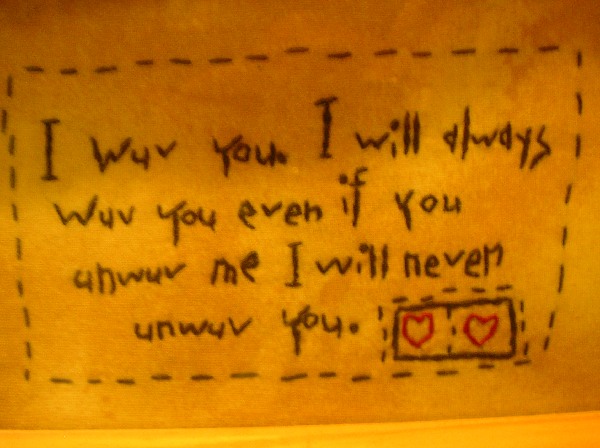 I wuv you. I will always
wuv you even if you
unwuv me I will never
unwuv you.